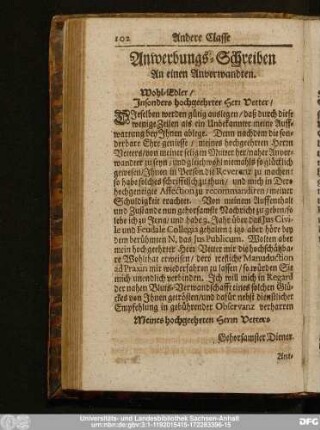 102 Andere Classe
Anwerbungs-Schreiben
An einen Anverwandten.
Wohl-Edler/
Insonders hochgeehrter Herr Vetter/
Dieselben werden gütig auslegen/ daß durch diese
wenige Zeilen als ein Unbekannter meine Auff-
wartung bey Ihnen ablege. Denn nachdem die son-
derbare Ehre geniesse/ meines hochgeehrten Herrn
Vetters von meiner seligen Mutter her/ naher Anver-
wandter zu seyn/ und gleichwohl niemahls so glücklich
gewesen/ Ihnen in Person die Reverenz zu machen:
so habe solches schrifftlich zu thun/ und mich in Dero
hochgeneigte Affection zu recommandiren/ meiner
Schuldigkeit erachtet. Von meinem Auffenthalt
und Zustande nun gehorsamste Nachricht zu geben/ so
lebe ich zu Jena/ und habe Jahr über das Jus Civi-
le und Feudale Collegia gehalten; itzo aber höre bey
dem berühmten N. das Jus Publicum. Wolten aber
mein hochgeehrter Herr Vetter mir die hochschätzba-
re Wohlthat erweisen/ dero restliche Manuduction
ad Praxin mir wiederfahren zu lassen/ so würden Sie
mich unendlich verbinden. Ich will mich in Regard
der nahen Bluts-Verwandschafft eines solchen Glü-
ckes von Ihnen getrösten/ und dafür nebst dienstlicher
Empfehlung in gebührender Observanz verharren
Meines hochgeehrten Herrn Vetters
Gehorsamster Diener.
Ant-
Universitäts- und Landesbibliothek Sachsen-Anhalt
urn:nbn:de:gbv:3:1-1192015415-172263356-15
DFG